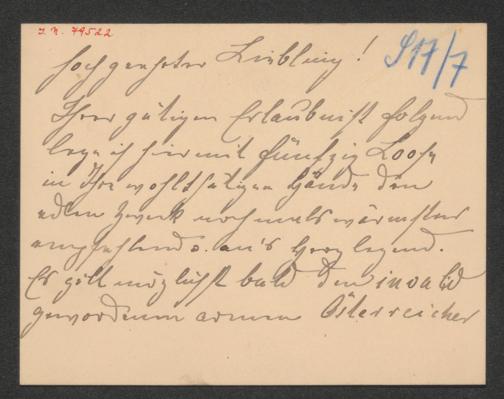 I. N. 79522
S 17/7
Hochgeehrter Liebling!
Ihrer gütigen Erlaubniß folgend
lege ich hiermit fünfzig Loose
in Ihre wohlthätigen Hände den
edlen Zweck nochmals wärmstens
empfehlend u. an's Herz legend.
Es gilt möglichst bald den invalid
gewordenen armen Österreicher